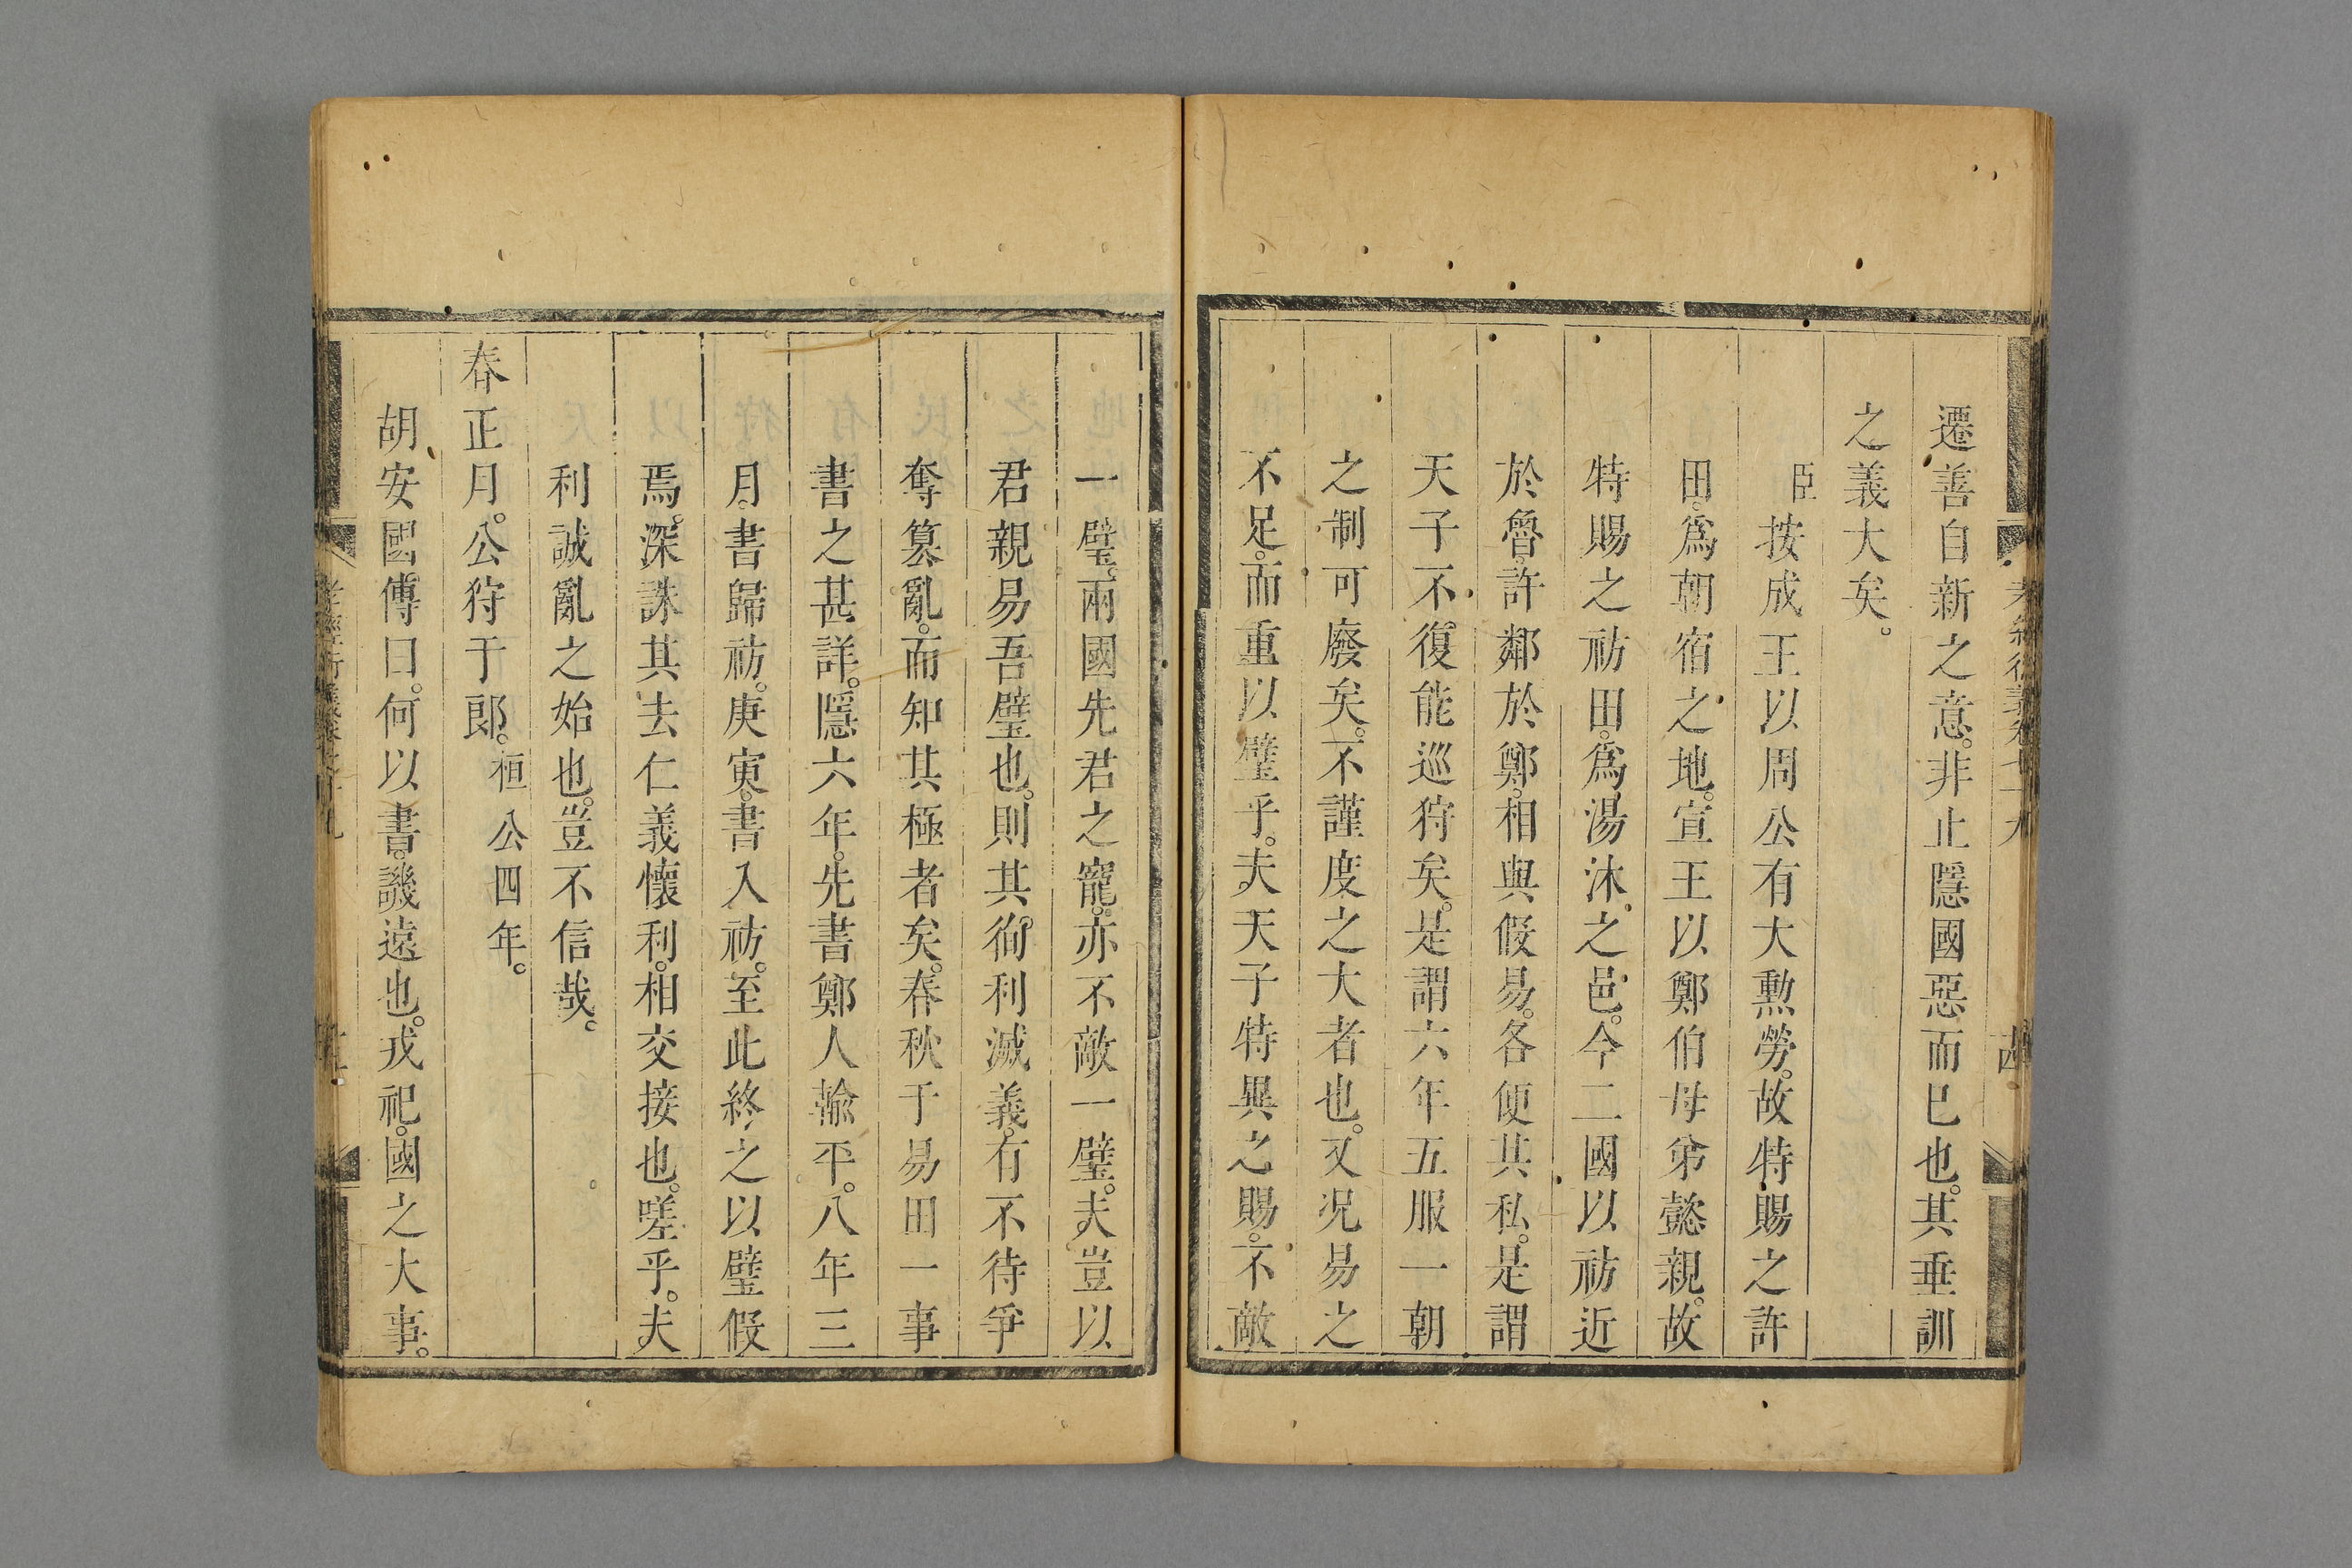 遷善自新之意。非止隱國惡而巳也。其垂訓
之義大矣。
臣按成王以周公有大勲勞。故特賜之許
田。爲朝宿之地。宣王以鄭伯母弟懿親。故
特賜之祊田。爲湯沐之邑。今二國以祊近
於魯。許鄰於鄭。相與假易。各便其私。是謂
天子不復能巡狩矣。是謂六年五服一朝
之制可廢矣。不謹度之大者也。又况易之
不足。而重以璧乎。夫天子特異之賜。不敵
一璧。兩國先君之寵。亦不敵一璧。夫豈以
君親易吾璧也。則其徇利滅義。有不待爭
奪篡亂。而知其極者矣。春秋于易田一事
書之甚詳。隱六年。先書鄭人輸平。八年三
月。書歸祊。庚寅。書入祊。至此終之以璧假
焉。深誅其去仁義懷利。相交接也。嗟乎。夫
利誠亂之始也。豈不信哉。
春正月。公狩于郎。桓公四年。
胡安國傳曰。何以書。譏遠也。戎祀。國之大事。